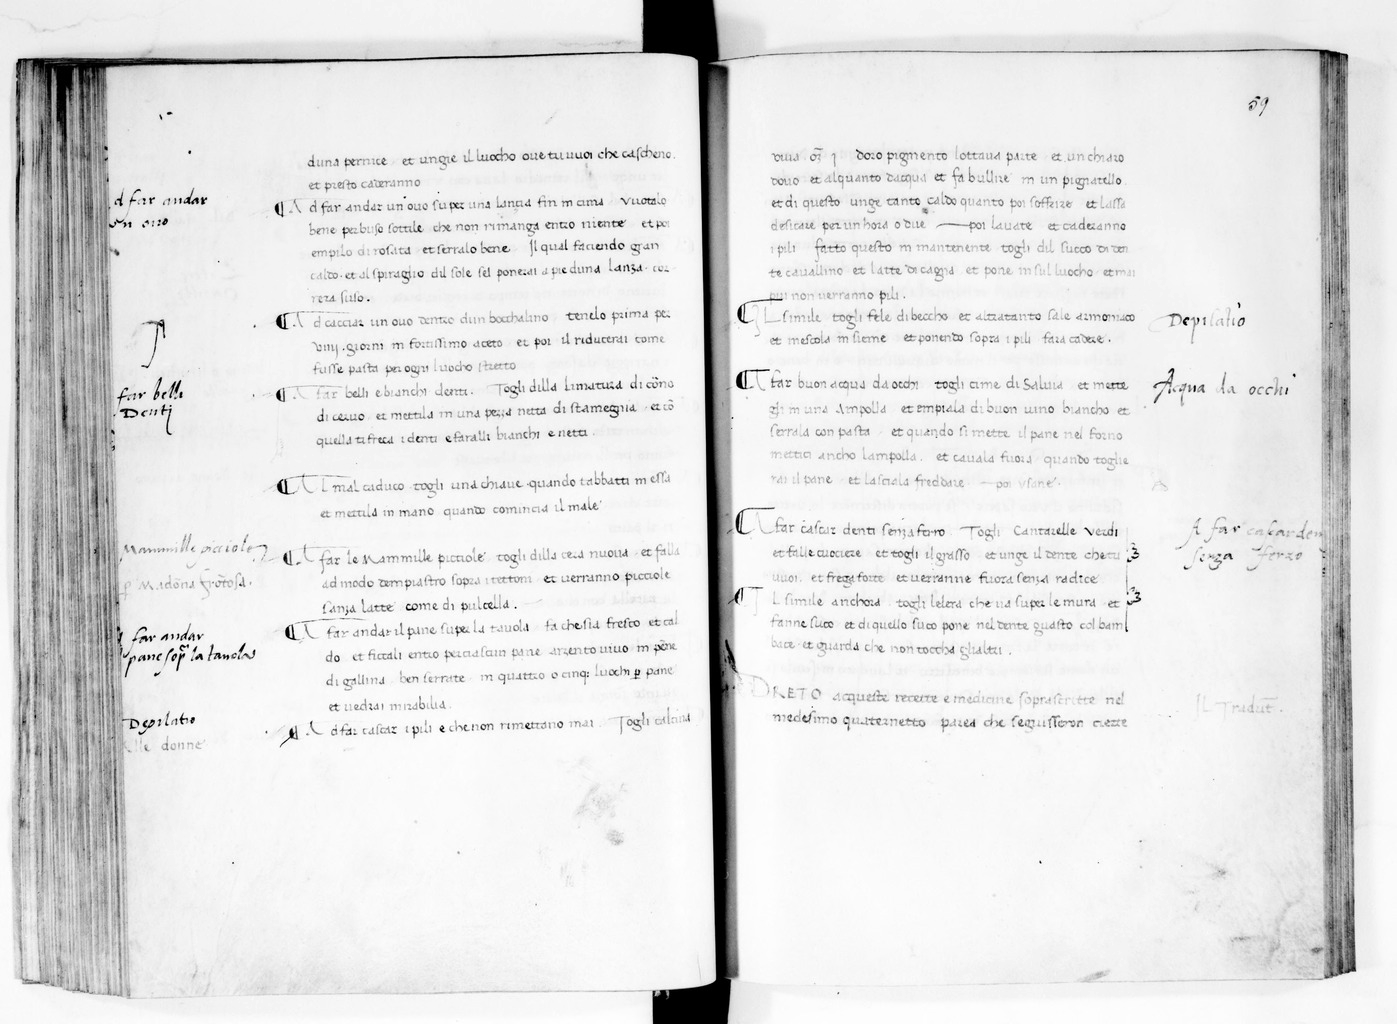 duna pernice et ungie il luocho ove tu vuoi che cascheno.
et presto caderanno
d far andar
un ovo
A d far andar un ovo super una lancia fin in cima Vuotalo
bene per buso sottile che non rimanga entro niente et poi
empilo di rosata et serralo bene Il qual faciendo gran
caldo et al spiraglio dil sole sel ponerai a pie duna lanza cor
rera suso.
A d cacciar un ovo dentro dun bocchalino tenelo prima per
viiij. giorni in fortissimo aceto et poi il riducerai come
fusse pasta per ogni luocho stretto
far belli
Denti
A far belli e bianchi denti. Togli dilla limatura di corno
di cervo et mettila in una pezza netta di stamegnia et cō
quella ti freca i denti e faralli bianchi e netti
A l mal caduco togli una chiave quando tabbatti in essa
et mettila in mano quando comincia il male
Mammille picciole
p Madōna
A far le Mammille picciole togli dilla cera nuova et falla
ad modo dempiastro sopra i tettoni et verranno picciole
sanza latte come di pulcella.
far andar
pane sop la tavola
A far andar il pane super la tavola fa che sia fresco et cal
do et ficcali entro per ciascun pane argento vivo in pēne
di gallina ben serrate in quattro o cinq luochi p pane
et vedrai mirabilia.
Depilatio
alle donne
A d far cascar i pili e che non rimettano mai. Togli calcina
59
viva oz j doro pigmento lottava parte et un chiaro
dovo et alquanto dacqua et fa bullire in un pignatello
et di questo unge tanto caldo quanto poi sofferire et lassa
desicare per un hora o due poi lavate et caderanno
i pili fatto questo in mantenente togli dil succo di den
te cavallino et latte di cagna et pone in sul luocho et mai
piu non verranno pili.
I L simile togli fele di beccho et altratanto sale armoniaco
et mescola insieme et ponendo sopra i pili fara cadere.
Depilatio
A far buon acqua da occhi togli cime di Salvia et mette
gli in una Ampolla et empiala di buon vino biancho et
serrala con pasta et quando si mette il pane nel forno
mettici ancho lampolla. et cavala fuora quando toglie
rai il pane et lasciala freddare poi usane.
Acqua da occhi
A far cascar denti senza ferro Togli Cantarelle verdi
et falle cuociere et togli il grasso et unge il dente che tu
vuoi. et frega forte et verranne fuora senza radice
A far cascar den
senza ferro
I L simile anchora togli lelera che va super le mura et
fanne suco et di quello suco pone nel dente guasto col bam
bace et guarda che non toccha gli altri.
DRETO acqueste recette e medicine soprascritte nel
medesimo quaternetto parea che seguisseron cierte
IL Tradut.